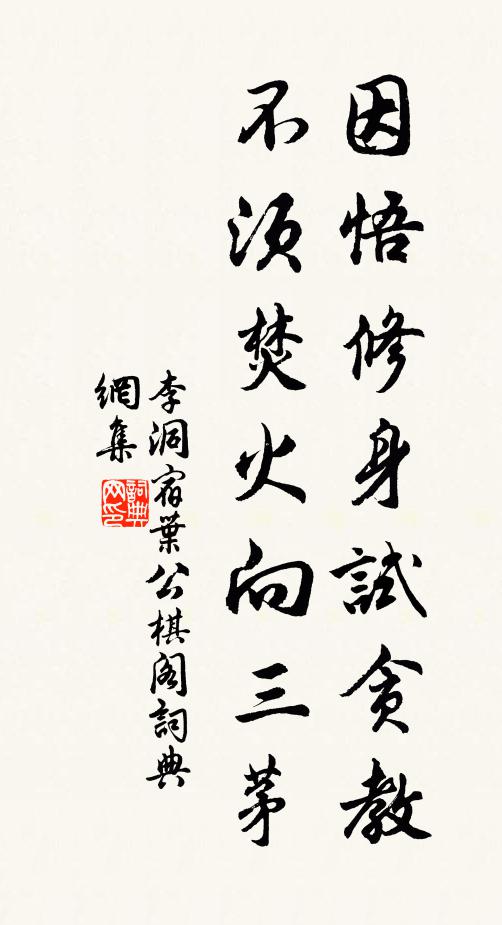 因悟修身試貪教
不須焚火向三茅
李洞宿葉公棋閣詞典
網集
詞典
网印